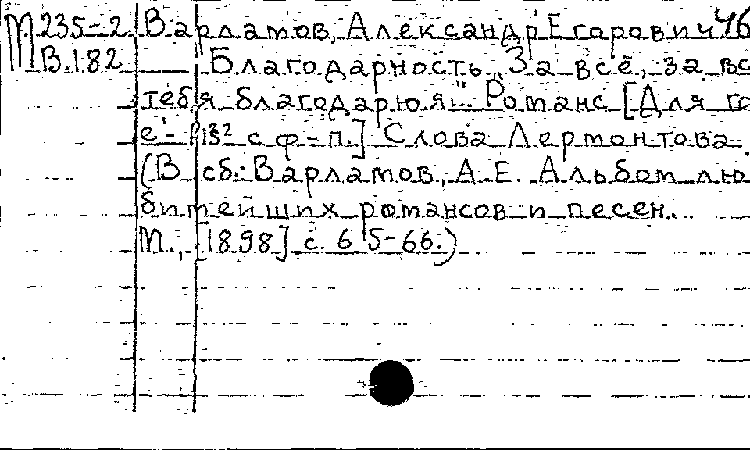 М 235-2 Варламов, Александр Егорович 46
В.182 Благодарность „За всё, за вс
тебя благодарю я". Романс [Для го
с ф-п.] Слова Лермонтова.
(В сб.: Варламов, А.Е. Альбом лю
бимейших романсов и песен.
М., [1898] с. 65-66.)